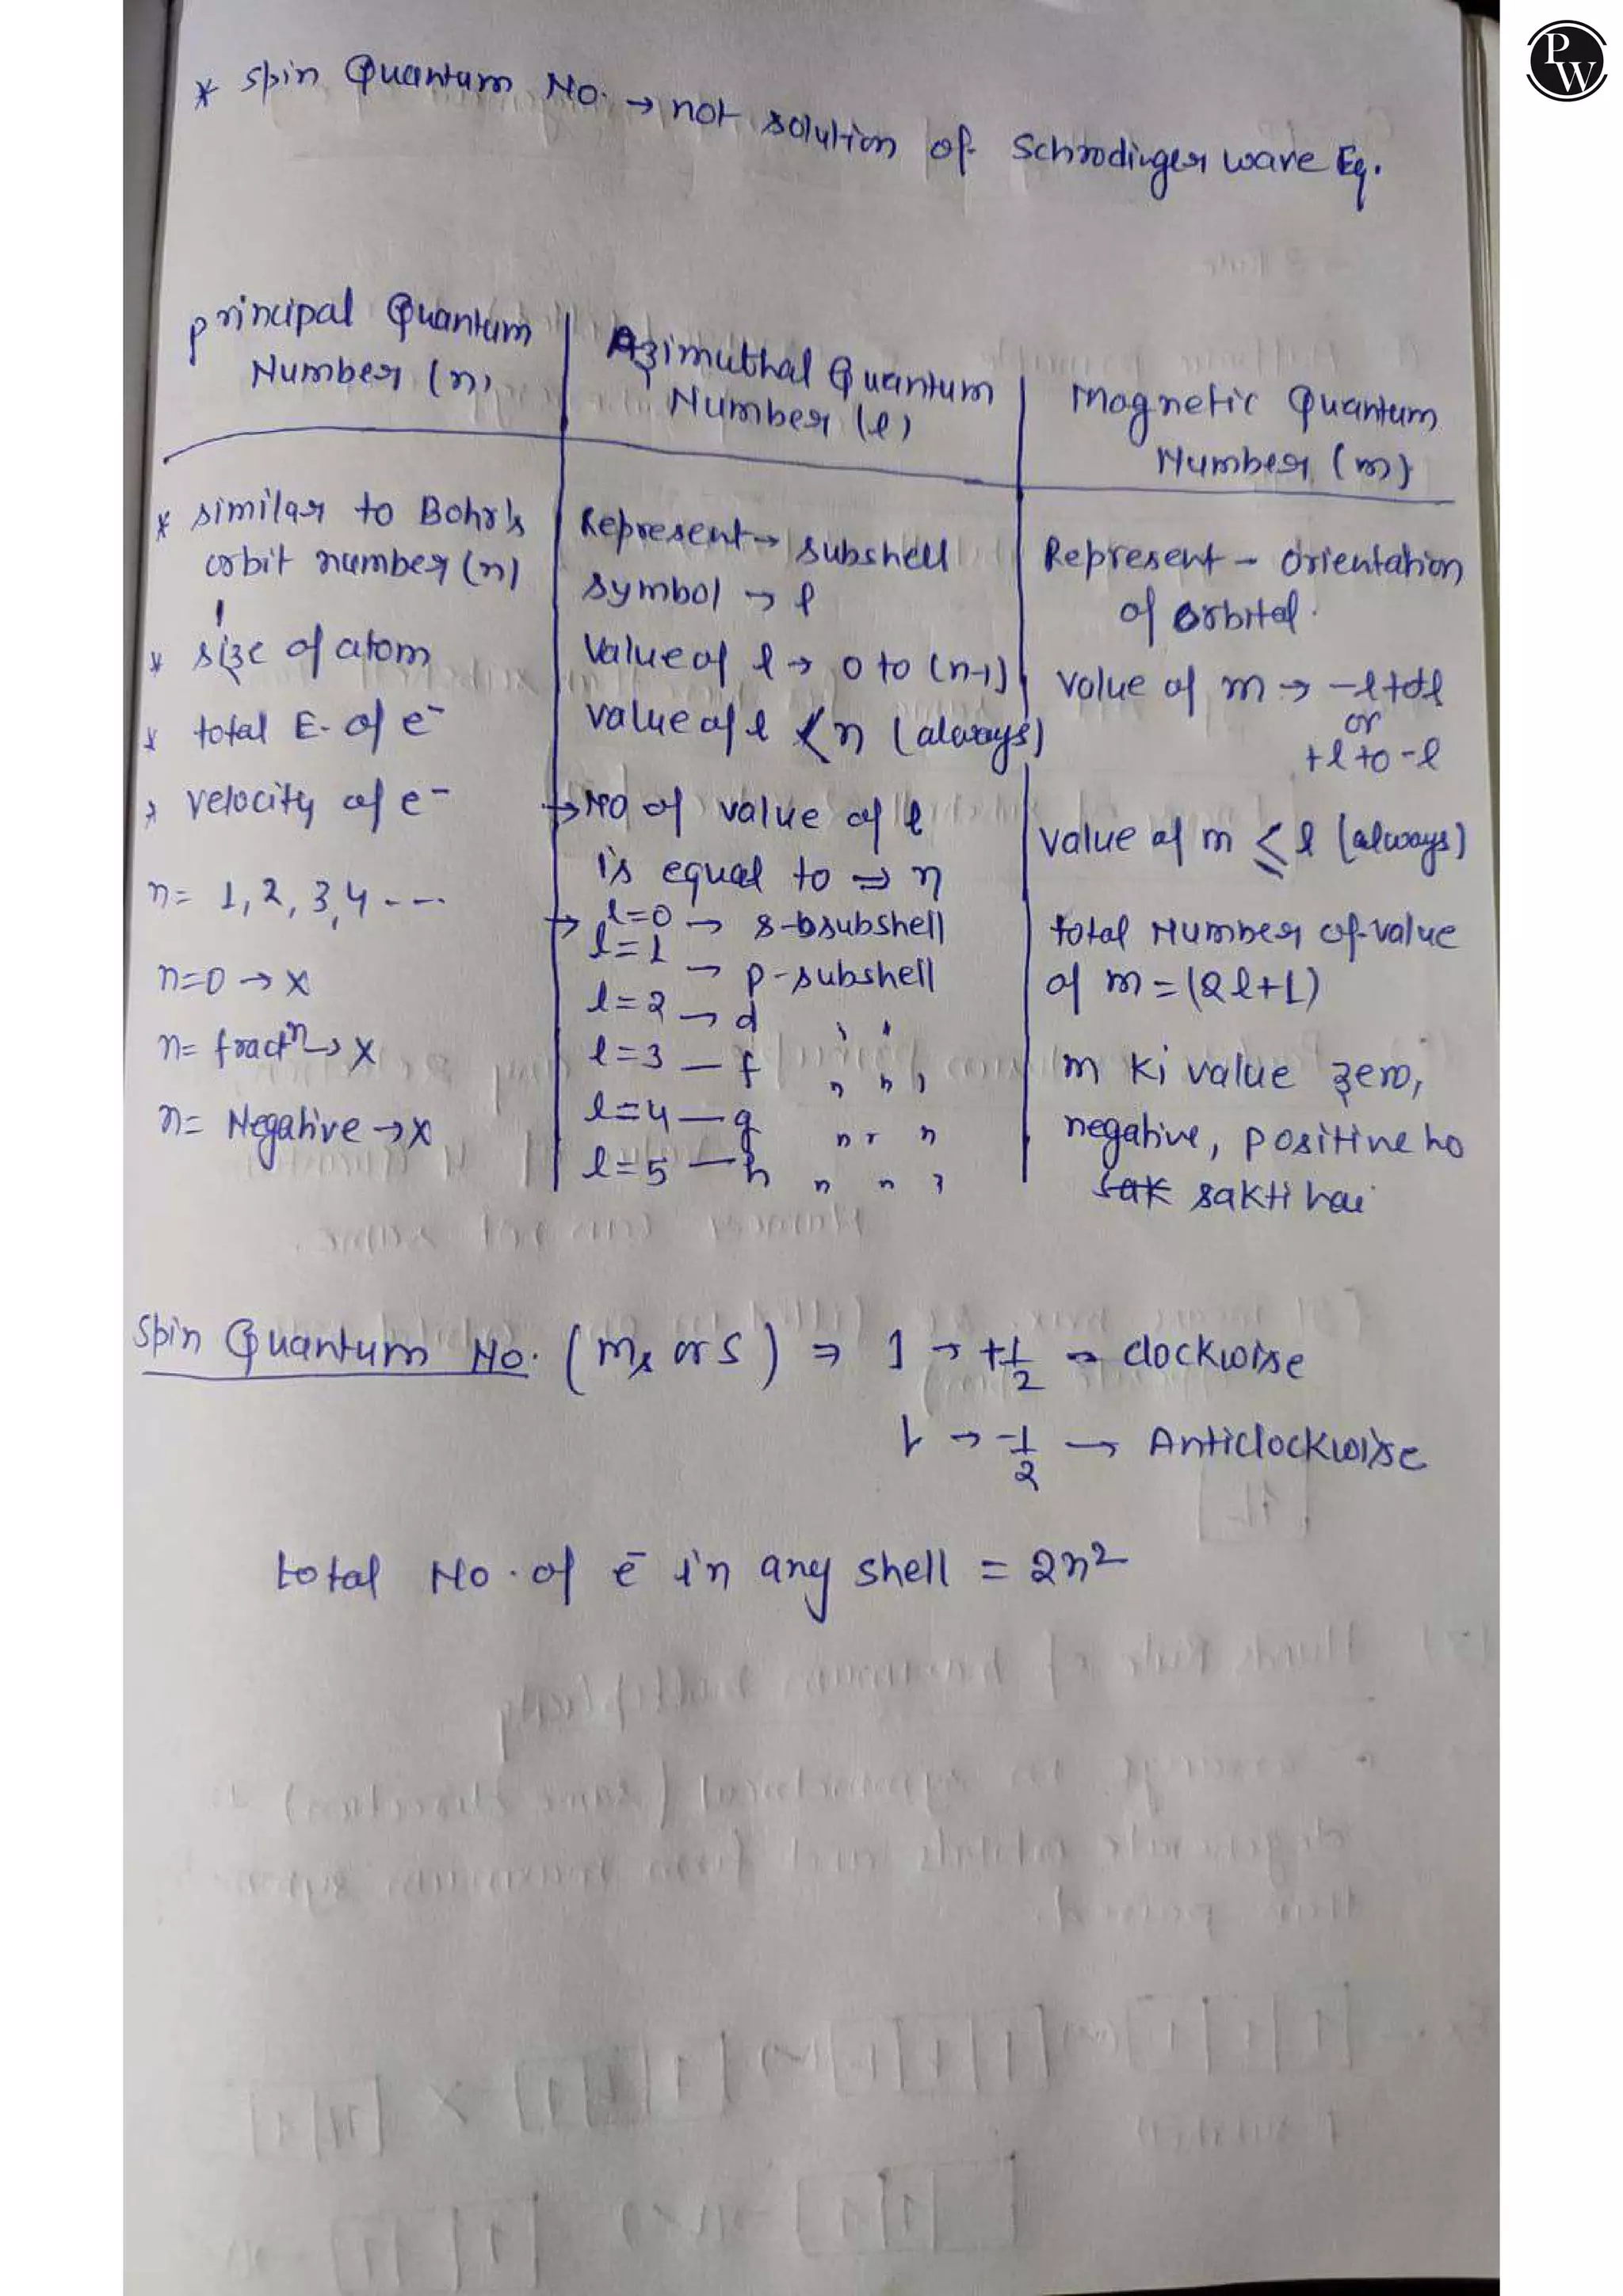 PW
* Spin Quantum No. → not solution of Schrodinger wave Eq.
Principal Quantum
Number (n)
* similar to Bohr's
orbit number (n)
* size of atom
* total E. of e⁻
* velocity of e⁻
n = 1, 2, 3, 4 ----
n=0 → x
n= fractⁿ → x
n= Negative → x
Azimuthal Quantum
Number (l)
Represent → subshell
symbol → l
Value of l → 0 to (n-1)
value of l < n (always)
→ No of value of l
is equal to ⇒ n
→ l=0 → s-subshell
l=1 → p-subshell
l=2 → d " "
l=3 — f " " "
l=4 — g " " "
l=5 — h " " "
Magnetic Quantum
Number (m)
Represent - Orientation
of orbital.
value of m → -l to +l
or
+l to -l
value of m ≤ l (always)
total Number of value
of m = (2l+1)
m ki value zero,
negative, positive ho
sak sakti hai
Spin Quantum No. (ms or s) ⇒ 1 → +1/2 → clockwise
1 → -1/2 → Anticlockwise
total No. of e⁻ in any shell = 2n²